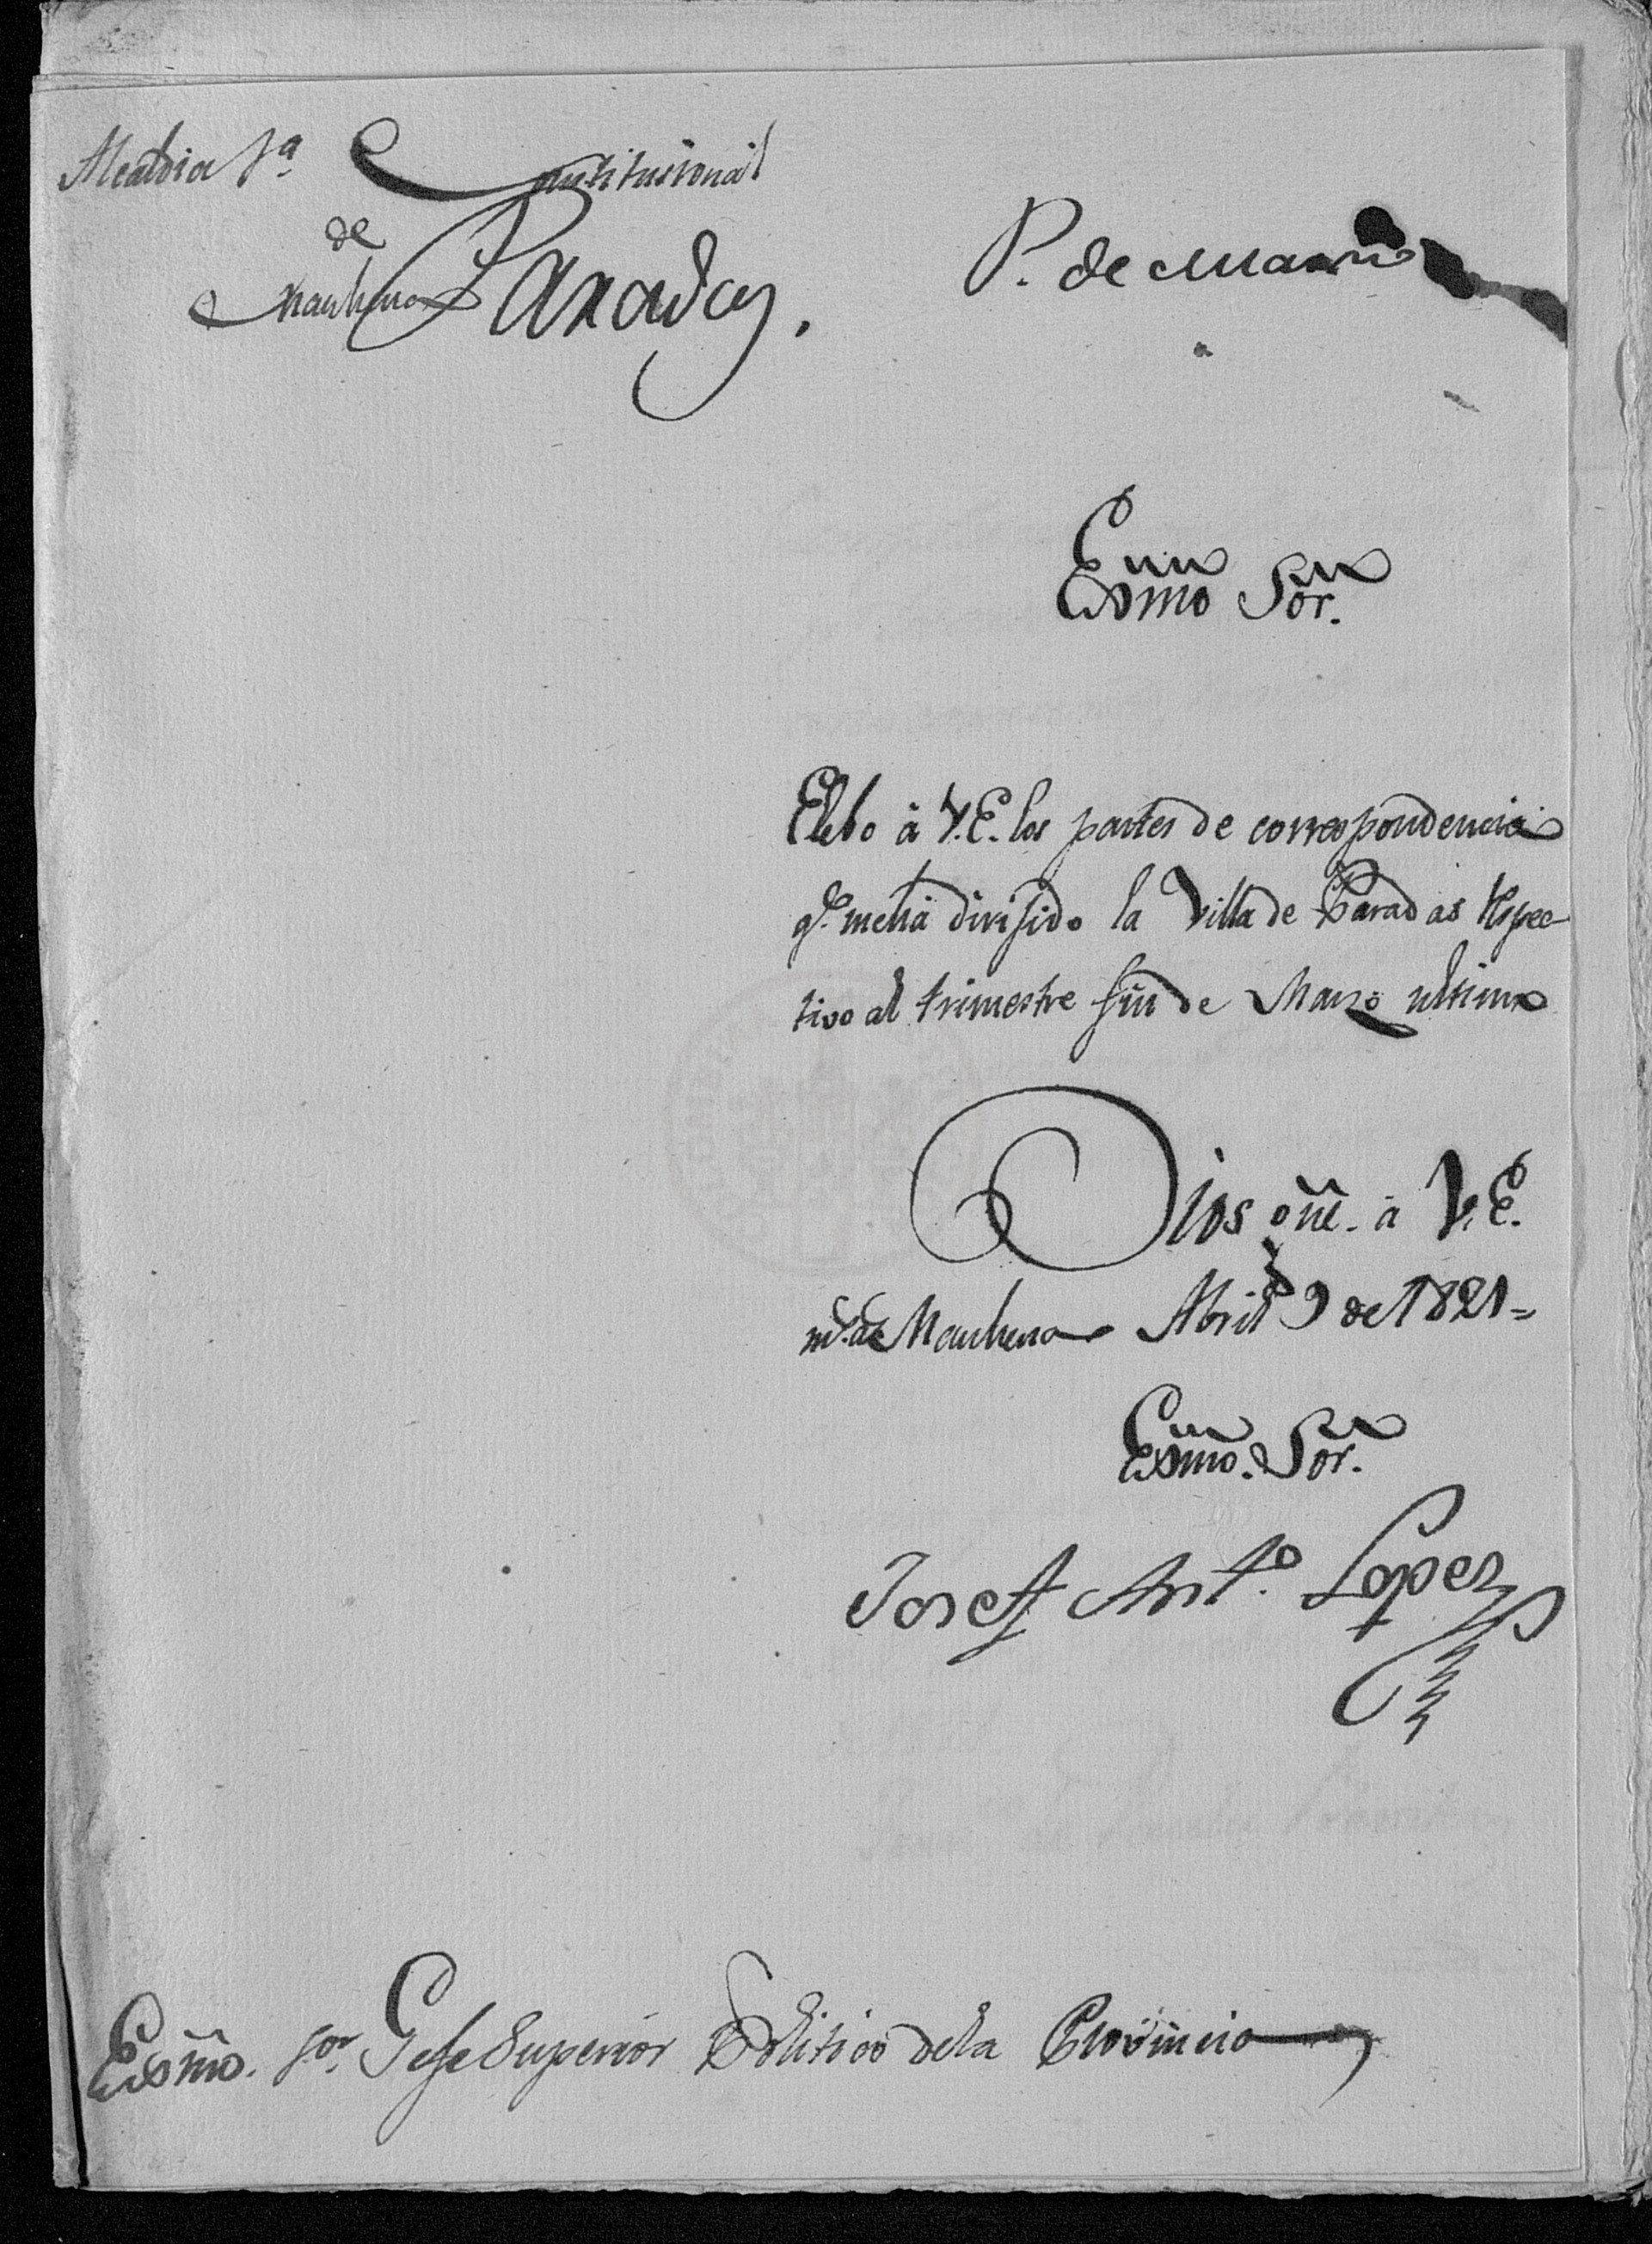 Alcaldia 1ª Constitusional
de
Marchena
Paradas.
P. de Marina
Exmo Sor.
Elebo à V.E. los partes de correspondencia
qe. meha dirijido la Villa de Paradas respec
tivo al trimestre fin de Marzo ultimo
Dios gũe. à V.E.
ms. as Marchena Abril 9 de 1821=
Exmo. Sor.
Josef Anto. Lopez
Exmo. Sor. Gefe Superior Politico dela Provincia